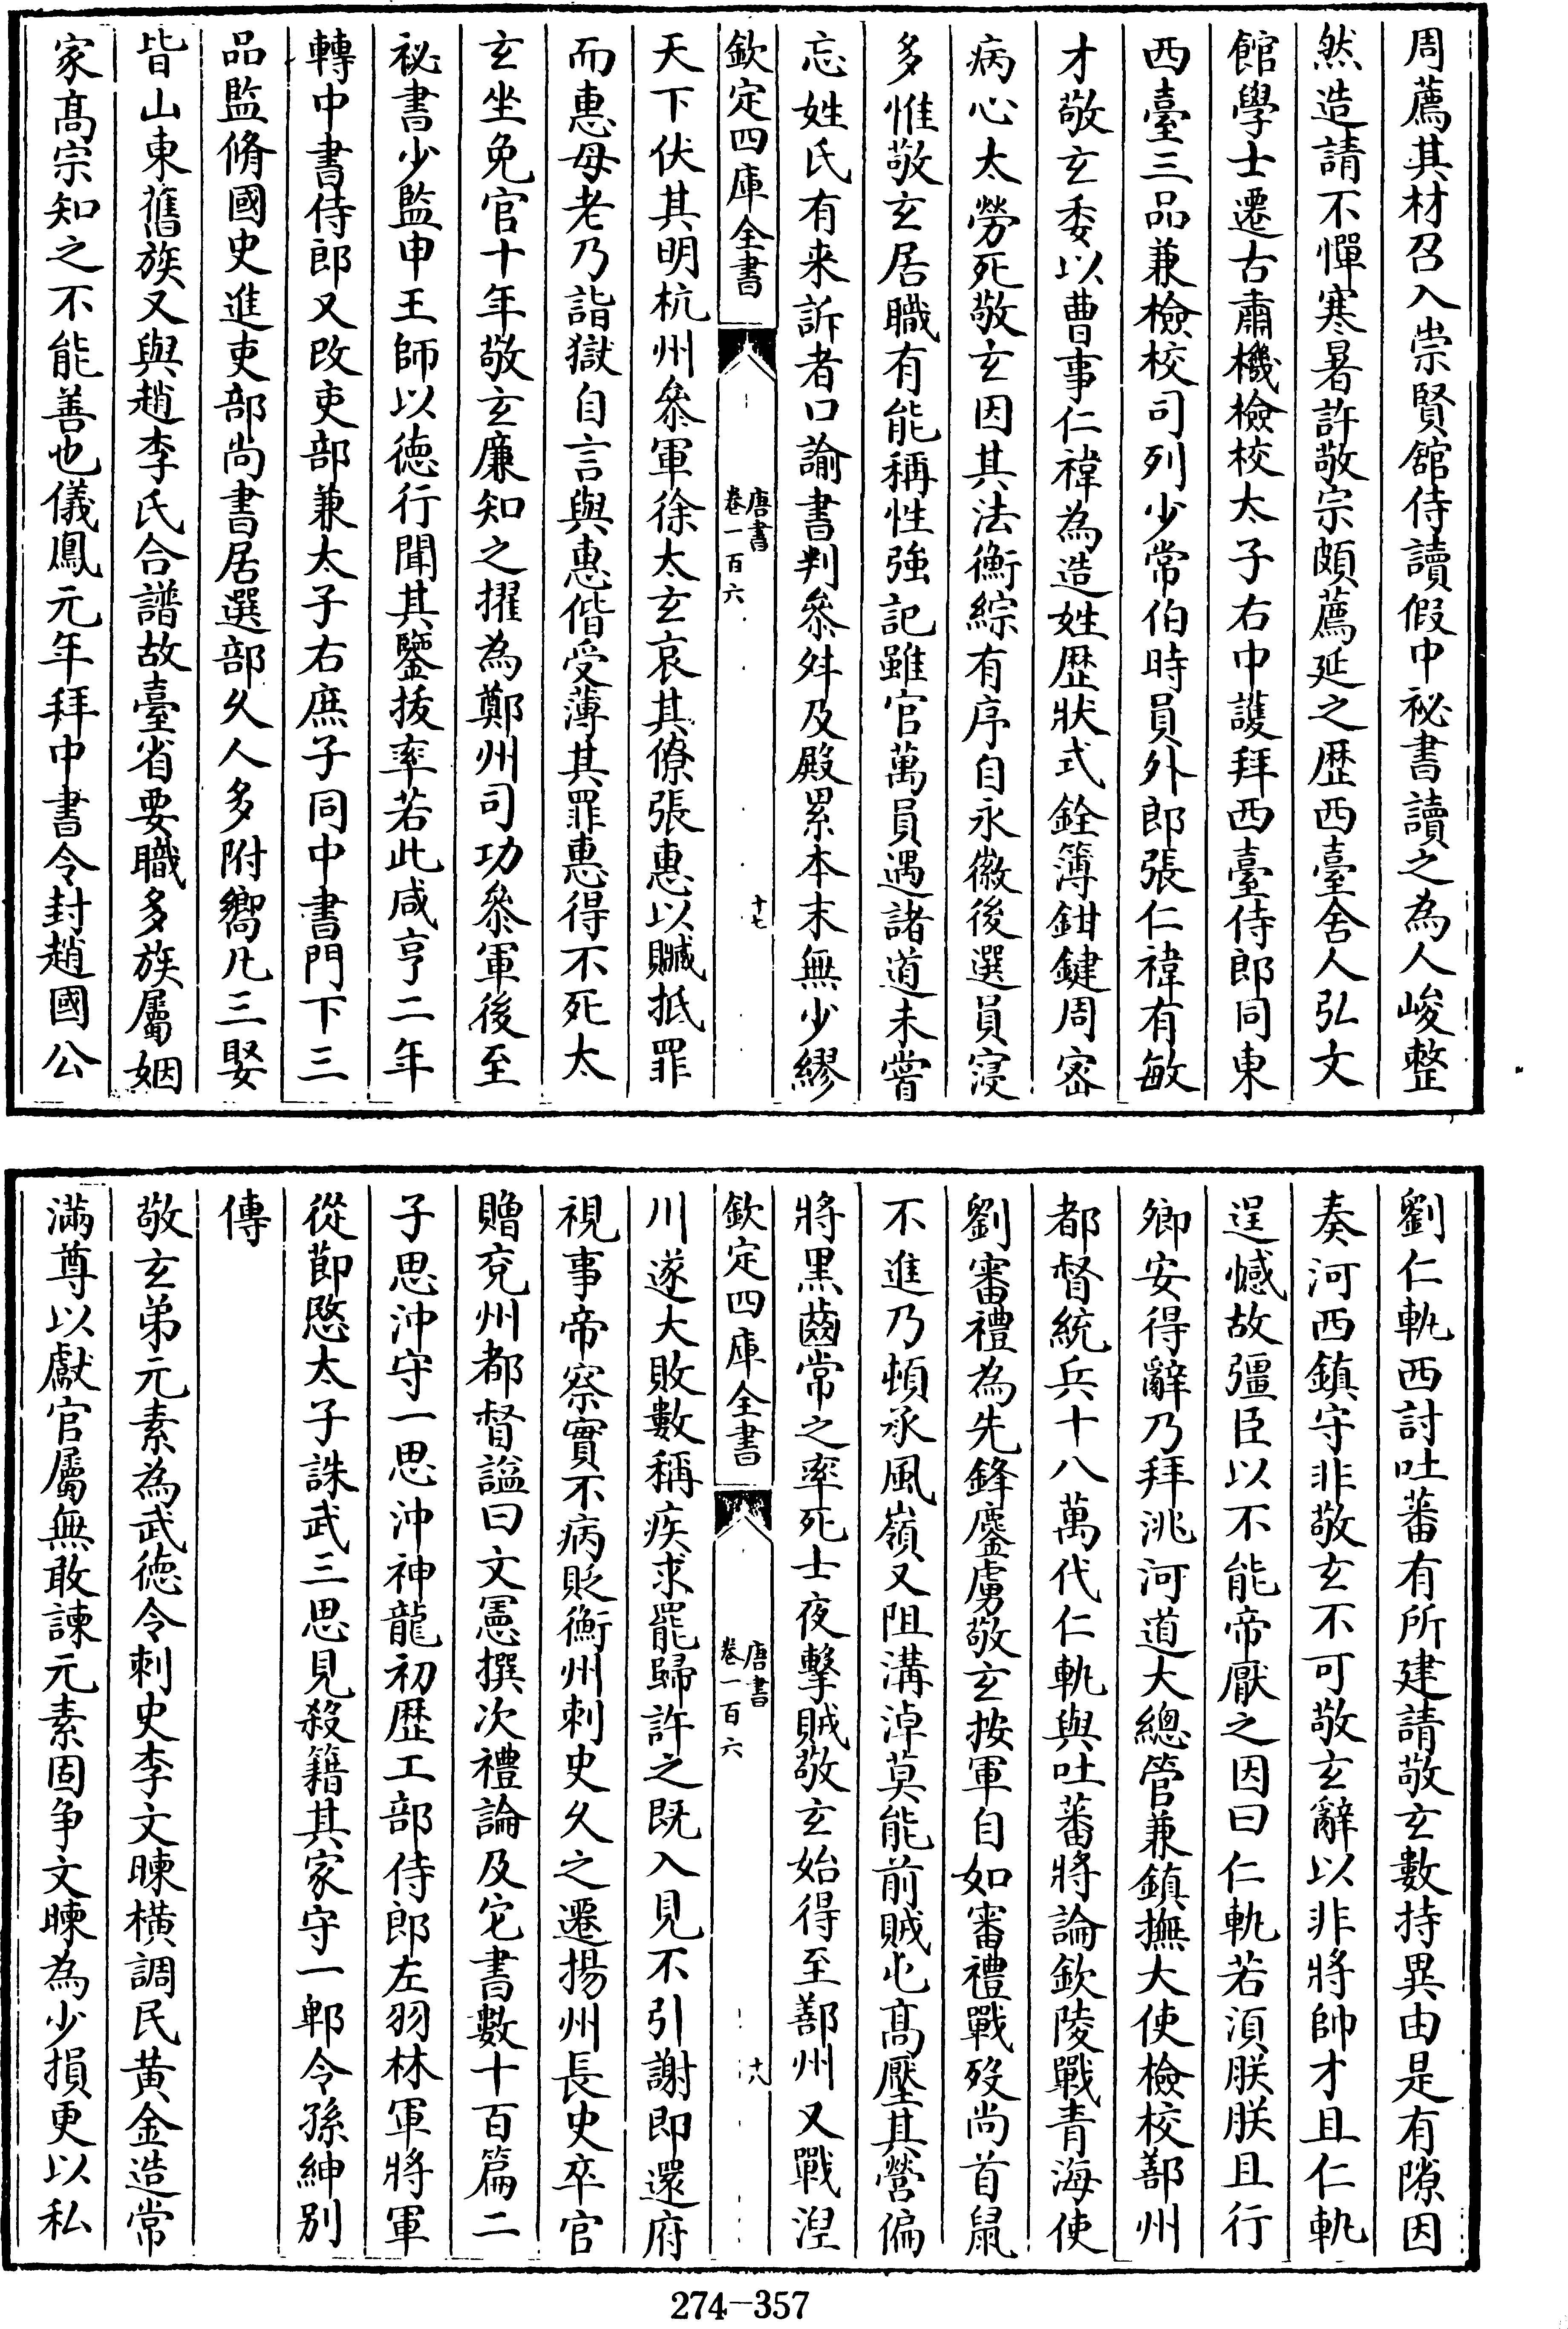 周薦其材召入崇賢館侍讀假中祕書讀之為人峻整
然造請不憚寒暑許敬宗頗薦延之歴西臺舍人弘文
館學士遷右肅機檢校太子右中護拜西臺侍郎同東
西臺三品兼檢校司列少常伯時員外郎張仁禕有敏
才敬玄委以曹事仁禕為造姓歴狀式銓簿鉗鍵周宻
病心太勞死敬玄因其法衡綜有序自永徽後選員寖
多惟敬玄居職有能稱性強記雖官萬員遇諸道未嘗
忘姓氏有来訴者口諭書判參舛及殿累本末無少繆
欽定四庫全書
唐書
卷一百六
十七
天下伏其明杭州參軍徐太玄哀其僚張惠以贓抵罪
而惠母老乃詣獄自言與惠偕受薄其罪惠得不死太
玄坐免官十年敬玄廉知之擢為鄭州司功參軍後至
祕書少監申王師以徳行聞其鑒拔率若此咸亨二年
轉中書侍郎又改吏部兼太子右庶子同中書門下三
品監脩國史進吏部尚書居選部久人多附嚮凡三娶
皆山東舊族又與趙李氏合譜故臺省要職多族屬姻
家髙宗知之不能善也儀鳳元年拜中書令封趙國公
劉仁軌西討吐蕃有所建請敬玄數持異由是有隙因
奏河西鎮守非敬玄不可敬玄辭以非將帥才且仁軌
逞憾故彊臣以不能帝厭之因曰仁軌若須朕朕且行
卿安得辭乃拜洮河道大總管兼鎮撫大使檢校鄯州
都督統兵十八萬代仁軌與吐蕃將論欽陵戰青海使
劉審禮為先鋒鏖虜敬玄按軍自如審禮戰歿尚首鼠
不進乃頓承風嶺又阻溝淖莫能前賊屯髙壓其營偏
將黑齒常之率死士夜擊賊敬玄始得至鄯州又戰湟
欽定四庫全書
唐書
卷一百六
十八
川遂大敗數稱疾求罷歸許之既入見不引謝即還府
視事帝察實不病貶衡州刺史久之遷揚州長史卒官
贈兖州都督謚曰文憲撰次禮論及它書數十百篇二
子思沖守一思沖神龍初歴工部侍郎左羽林軍將軍
從節愍太子誅武三思見殺籍其家守一郫令孫紳别
傳
敬玄弟元素為武徳令刺史李文暕横調民黄金造常
滿尊以獻官屬無敢諫元素固争文暕為少損更以私
274-357